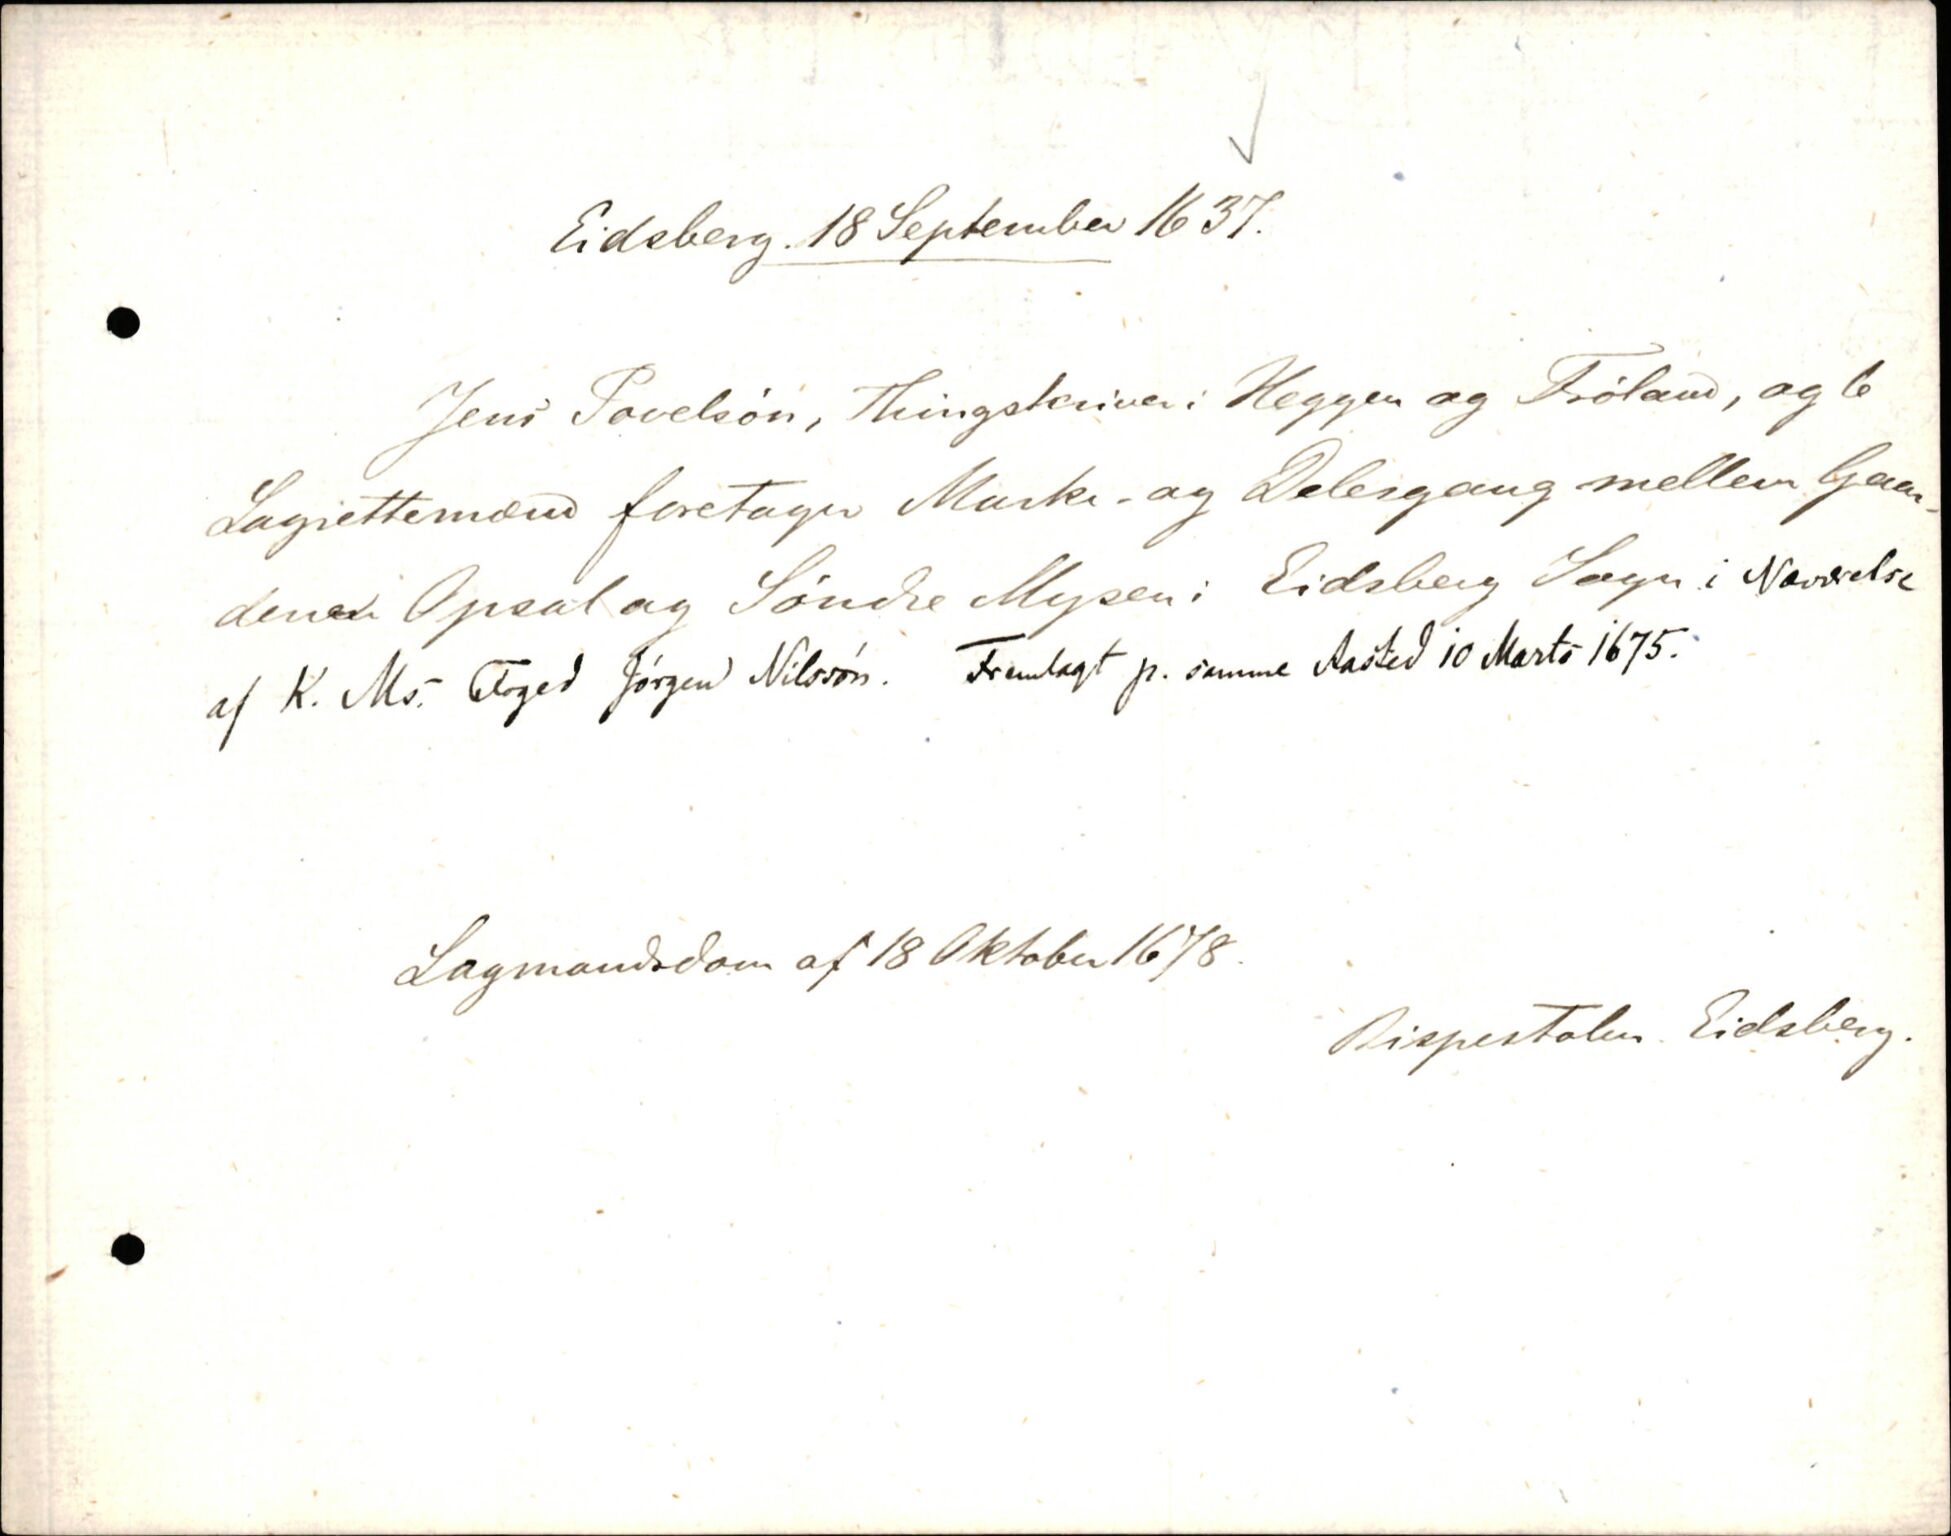 Eidsberg. 18 September 1637.
Jens Povelsón, Thingskriver i Heggen og Fróland, og 6
Lagrettemænd foretager Marke- og Delesgang mellem Gaar-
dene Opsal og Sóndre Mysen i Eidsberg Sogn i Nærværelse
af K. Ms. Foged Jórgen Nilssón. Fremlagt p. samme Aasted 10 Marts 1675.
Lagmandsdom af 18 Oktober 1678.
Bispestolen Eidsberg.